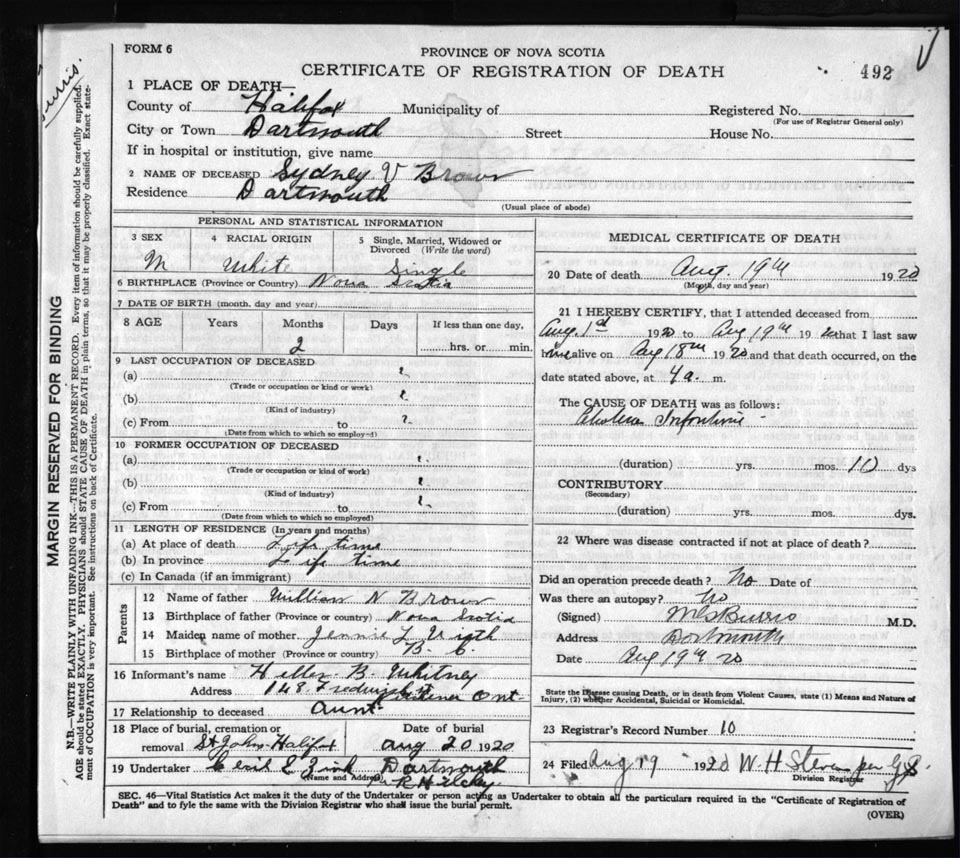 FORM 6
PROVINCE OF NOVA SCOTIA
CERTIFICATE OF REGISTRATION OF DEATH
492
1 PLACE OF DEATH—
County of Halifax Municipality of Registered No.
(For use of Registrar General only)
City or Town Dartmouth Street House No.
If in hospital or institution, give name
2 NAME OF DECEASED Sydney V Brown
Residence Dartmouth
(Usual place of abode)
PERSONAL AND STATISTICAL INFORMATION
3 SEX 4 RACIAL ORIGIN 5 Single, Married, Widowed or Divorced (Write the word)
M White Single
6 BIRTHPLACE (Province or Country) Nova Scotia
7 DATE OF BIRTH (month, day and year)
8 AGE Years Months Days If less than one day,
2 hrs. or min.
9 LAST OCCUPATION OF DECEASED
(a) ?
(Trade or occupation or kind or work)
(b) ?
(Kind of industry)
(c) From to ?
(Date from which to which so employed)
10 FORMER OCCUPATION OF DECEASED
(a) ?
(Trade or occupation or kind of work)
(b) ?
(Kind of industry)
(c) From to ?
(Date from which to which so employed)
11 LENGTH OF RESIDENCE (In years and months)
(a) At place of death Life time
(b) In province Life time
(c) In Canada (if an immigrant)
Parents
12 Name of father William N Brown
13 Birthplace of father (Province or country) Nova Scotia
14 Maiden name of mother Jennie L
15 Birthplace of mother (Province or country) B. C.
16 Informant's name B. Whitney
Address 148 Ont
17 Relationship to deceased Aunt
18 Place of burial, cremation or removal St Johns Halifax
Date of burial
Aug 20 1920
19 Undertaker Dartmouth
(Name and Address)
MEDICAL CERTIFICATE OF DEATH
20 Date of death Aug. 19th 1920
(Month, day and year)
21 I HEREBY CERTIFY, that I attended deceased from
Aug. 1920 to Aug 19th 1920 that I last saw
him alive on Aug 18th 1920 and that death occurred, on the
date stated above, at 4 a. m.
The CAUSE OF DEATH was as follows:
Cholera Infantum
(duration) yrs. mos. 10 dys
CONTRIBUTORY
(Secondary)
(duration) yrs. mos. dys.
22 Where was disease contracted if not at place of death?
Did an operation precede death? No Date of
Was there an autopsy? No
(Signed) Burris M.D.
Address Dartmouth
Date Aug 19th 20
State the Disease causing Death, or in death from Violent Causes, state (1) Means and Nature of
Injury, (2) whether Accidental, Suicidal or Homicidal.
23 Registrar's Record Number 10
24 Filed Aug 19 1920 W. H. Stevens per
Division Registrar
SEC. 46—Vital Statistics Act makes it the duty of the Undertaker or person acting as Undertaker to obtain all the particulars required in the "Certificate of Registration of
Death" and to fyle the same with the Division Registrar who shall issue the burial permit.
(OVER)
MARGIN RESERVED FOR BINDING
N.B.—WRITE PLAINLY WITH UNFADING INK—THIS IS A PERMANENT RECORD. Every item of information should be carefully supplied.
AGE should be stated EXACTLY. PHYSICIANS should STATE CAUSE OF DEATH in plain terms, so that it may be properly classified. Exact state-
ment of OCCUPATION is very important. See instructions on back of Certificate.
Burris.